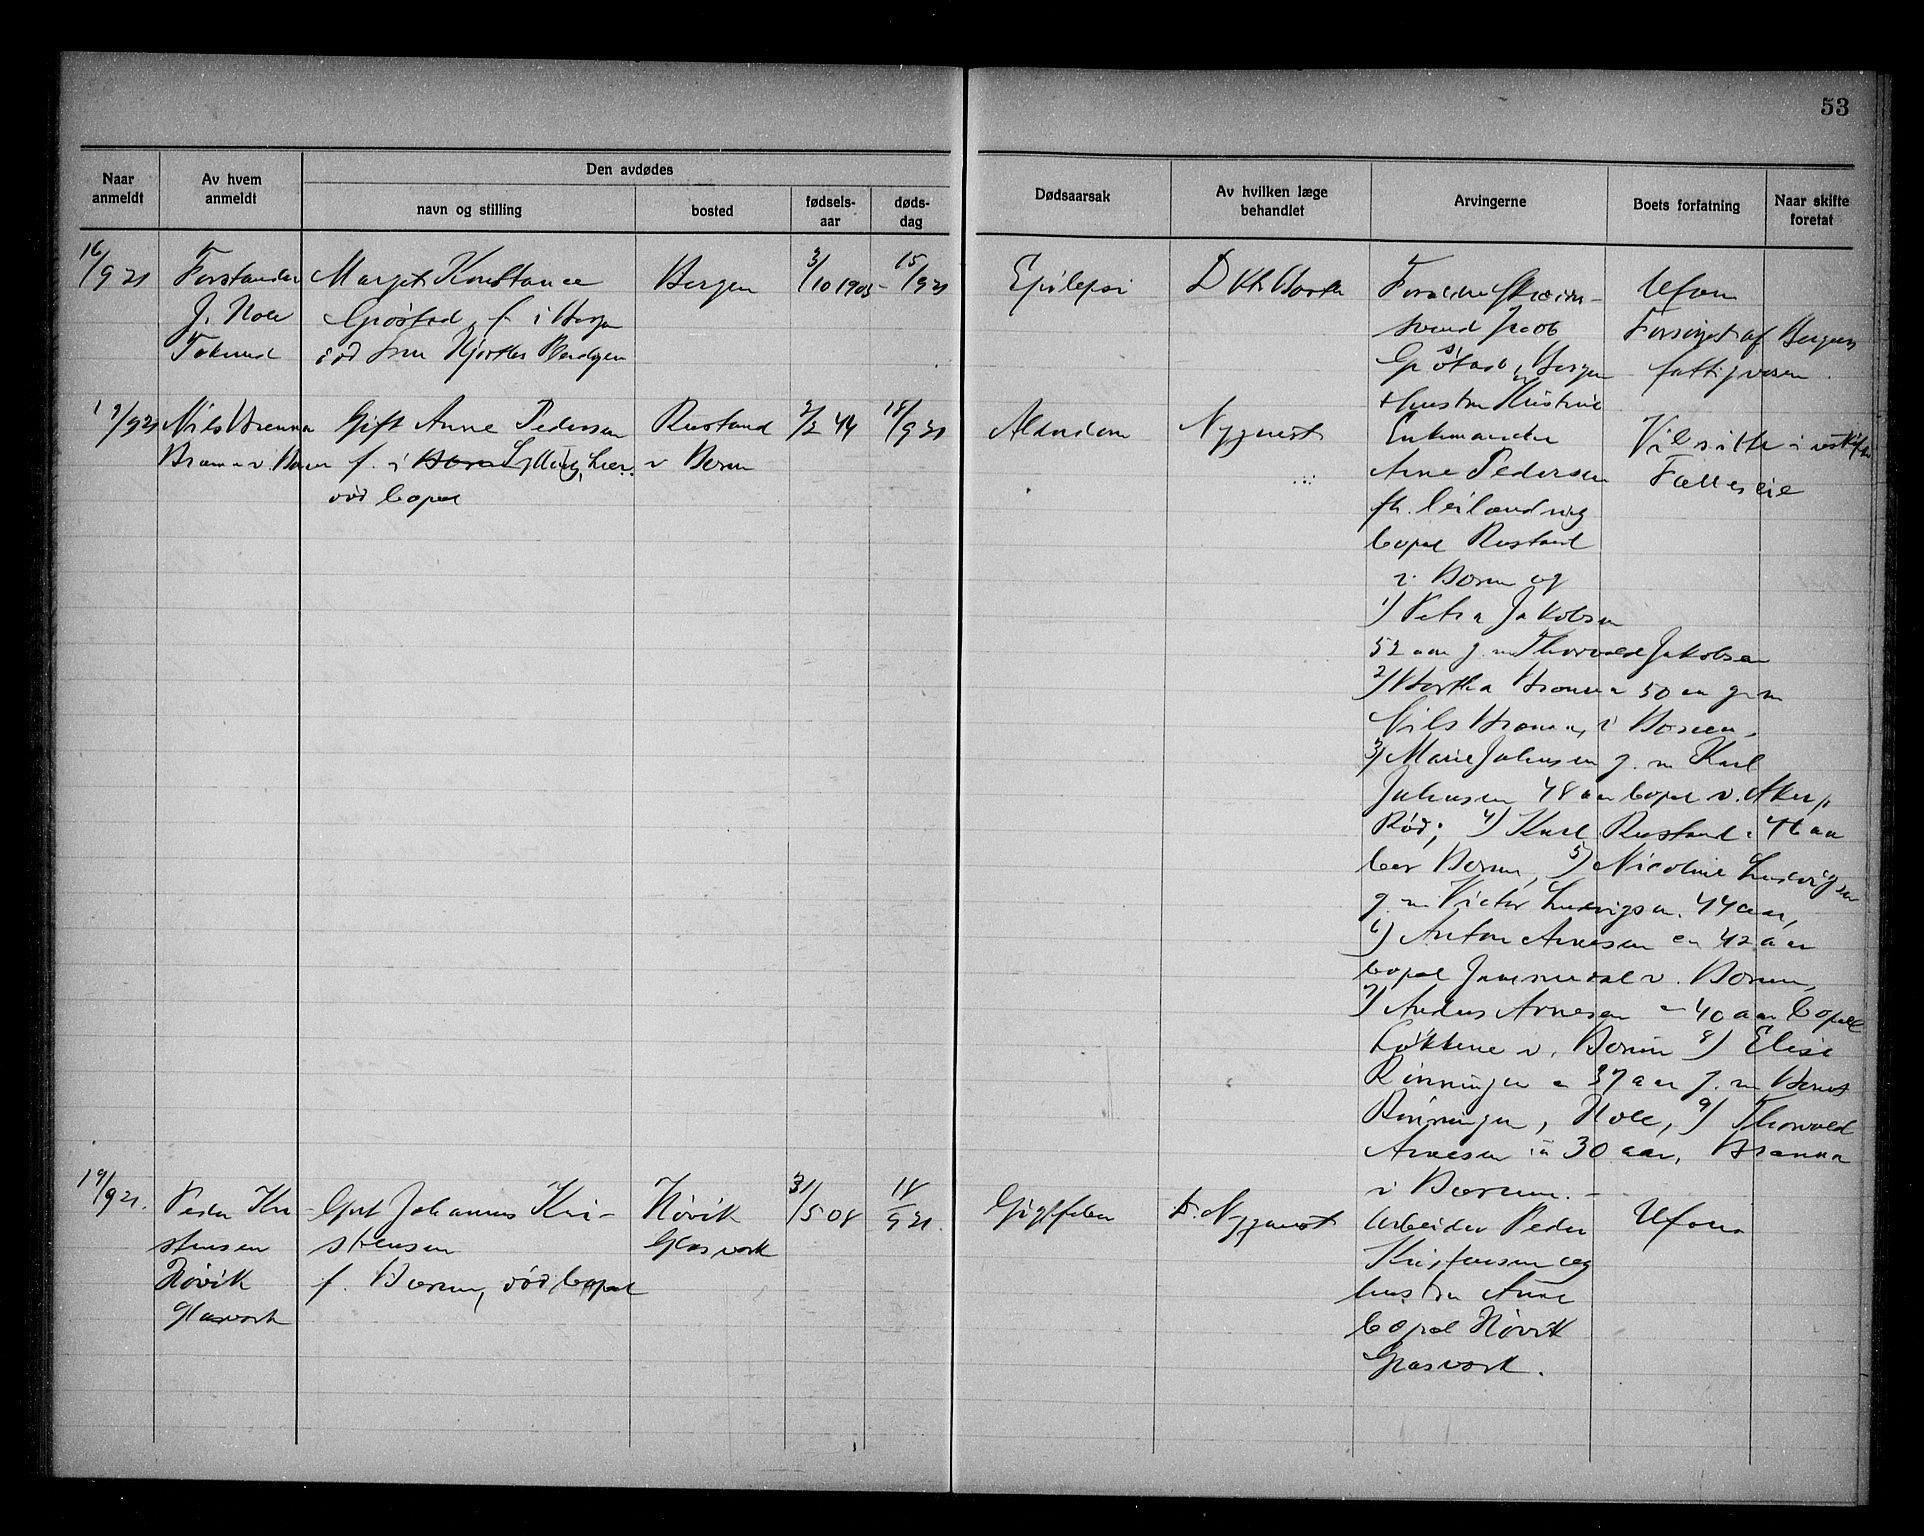 53
Naar anmeldt
Av hvem anmeldt
Den avdødes
navn og stilling
bosted
fødsels-aar
døds-dag
Dødsaarsak
Av hvilken læge behandlet
Arvingerne
Boets forfatning
Naar skifte foretat
16/9 21
Forstander
J. Hole
Tokerud
Margit Konstance
Grøstad, f. i Bergen
død
Bergen
3/10 1903
15/9 21
Epilepsi
Forældre
Jacob
Grøstad, Bergen
hustru Kristine
Ufom
Forsørget af Bergens
fattigvæsen.
19/9 21
Nils Brenna
Brenna v. Bærum
Gift Anne Pedersen
f. i Sylling, Lier.
død bopæl
Rustand
v Bærum
2/2 44
18/9 21
Alderdom
Nyquist
Enkemanden
Arne Pedersen
fh.
bopæl Rustand
v. Bærum og
1) Petra Jakobsen
52 aar g. m Thorvald Jakobsen
2) Bertha Brenna 50 aar g. m
Nils Brenna, i Bærum,
3) Marie Johnsen g. m Karl
Johnsen 48 aar bopæl v. Aker p.
Rød; 4) Karl Rustand 46 aar
bor Bærum, 5) Nicoline Ludvigsen
g. m Victor Ludvigsen 44 aar,
6) Anton Arnesen 42 aar
bopæl v. Bærum,
7) Anders Arnesen 40 aar bopæl
Løkkene v. Bærum 8) Elise
Rønningen 37 aar g. m Bernt
Rønningen, Hole, 9) Thorvald
Arnesen 30 aar, Brenna
v Bærum. -
Vil sitte i uskiftet
Fælleseie
19/9 21.
Peder Kri
stensen
Høvik
Glasverk
Gut Johannes Kri-
stensen
f. Bærum, død bopæl
Høvik
Glasverk
31/5 08
18/9 21.
Gigtfeber
Dr. Nyquist
Arbeider Peder
Kristensen og
hustru Anne
bopæl Høvik
Glasverk.
Ufom